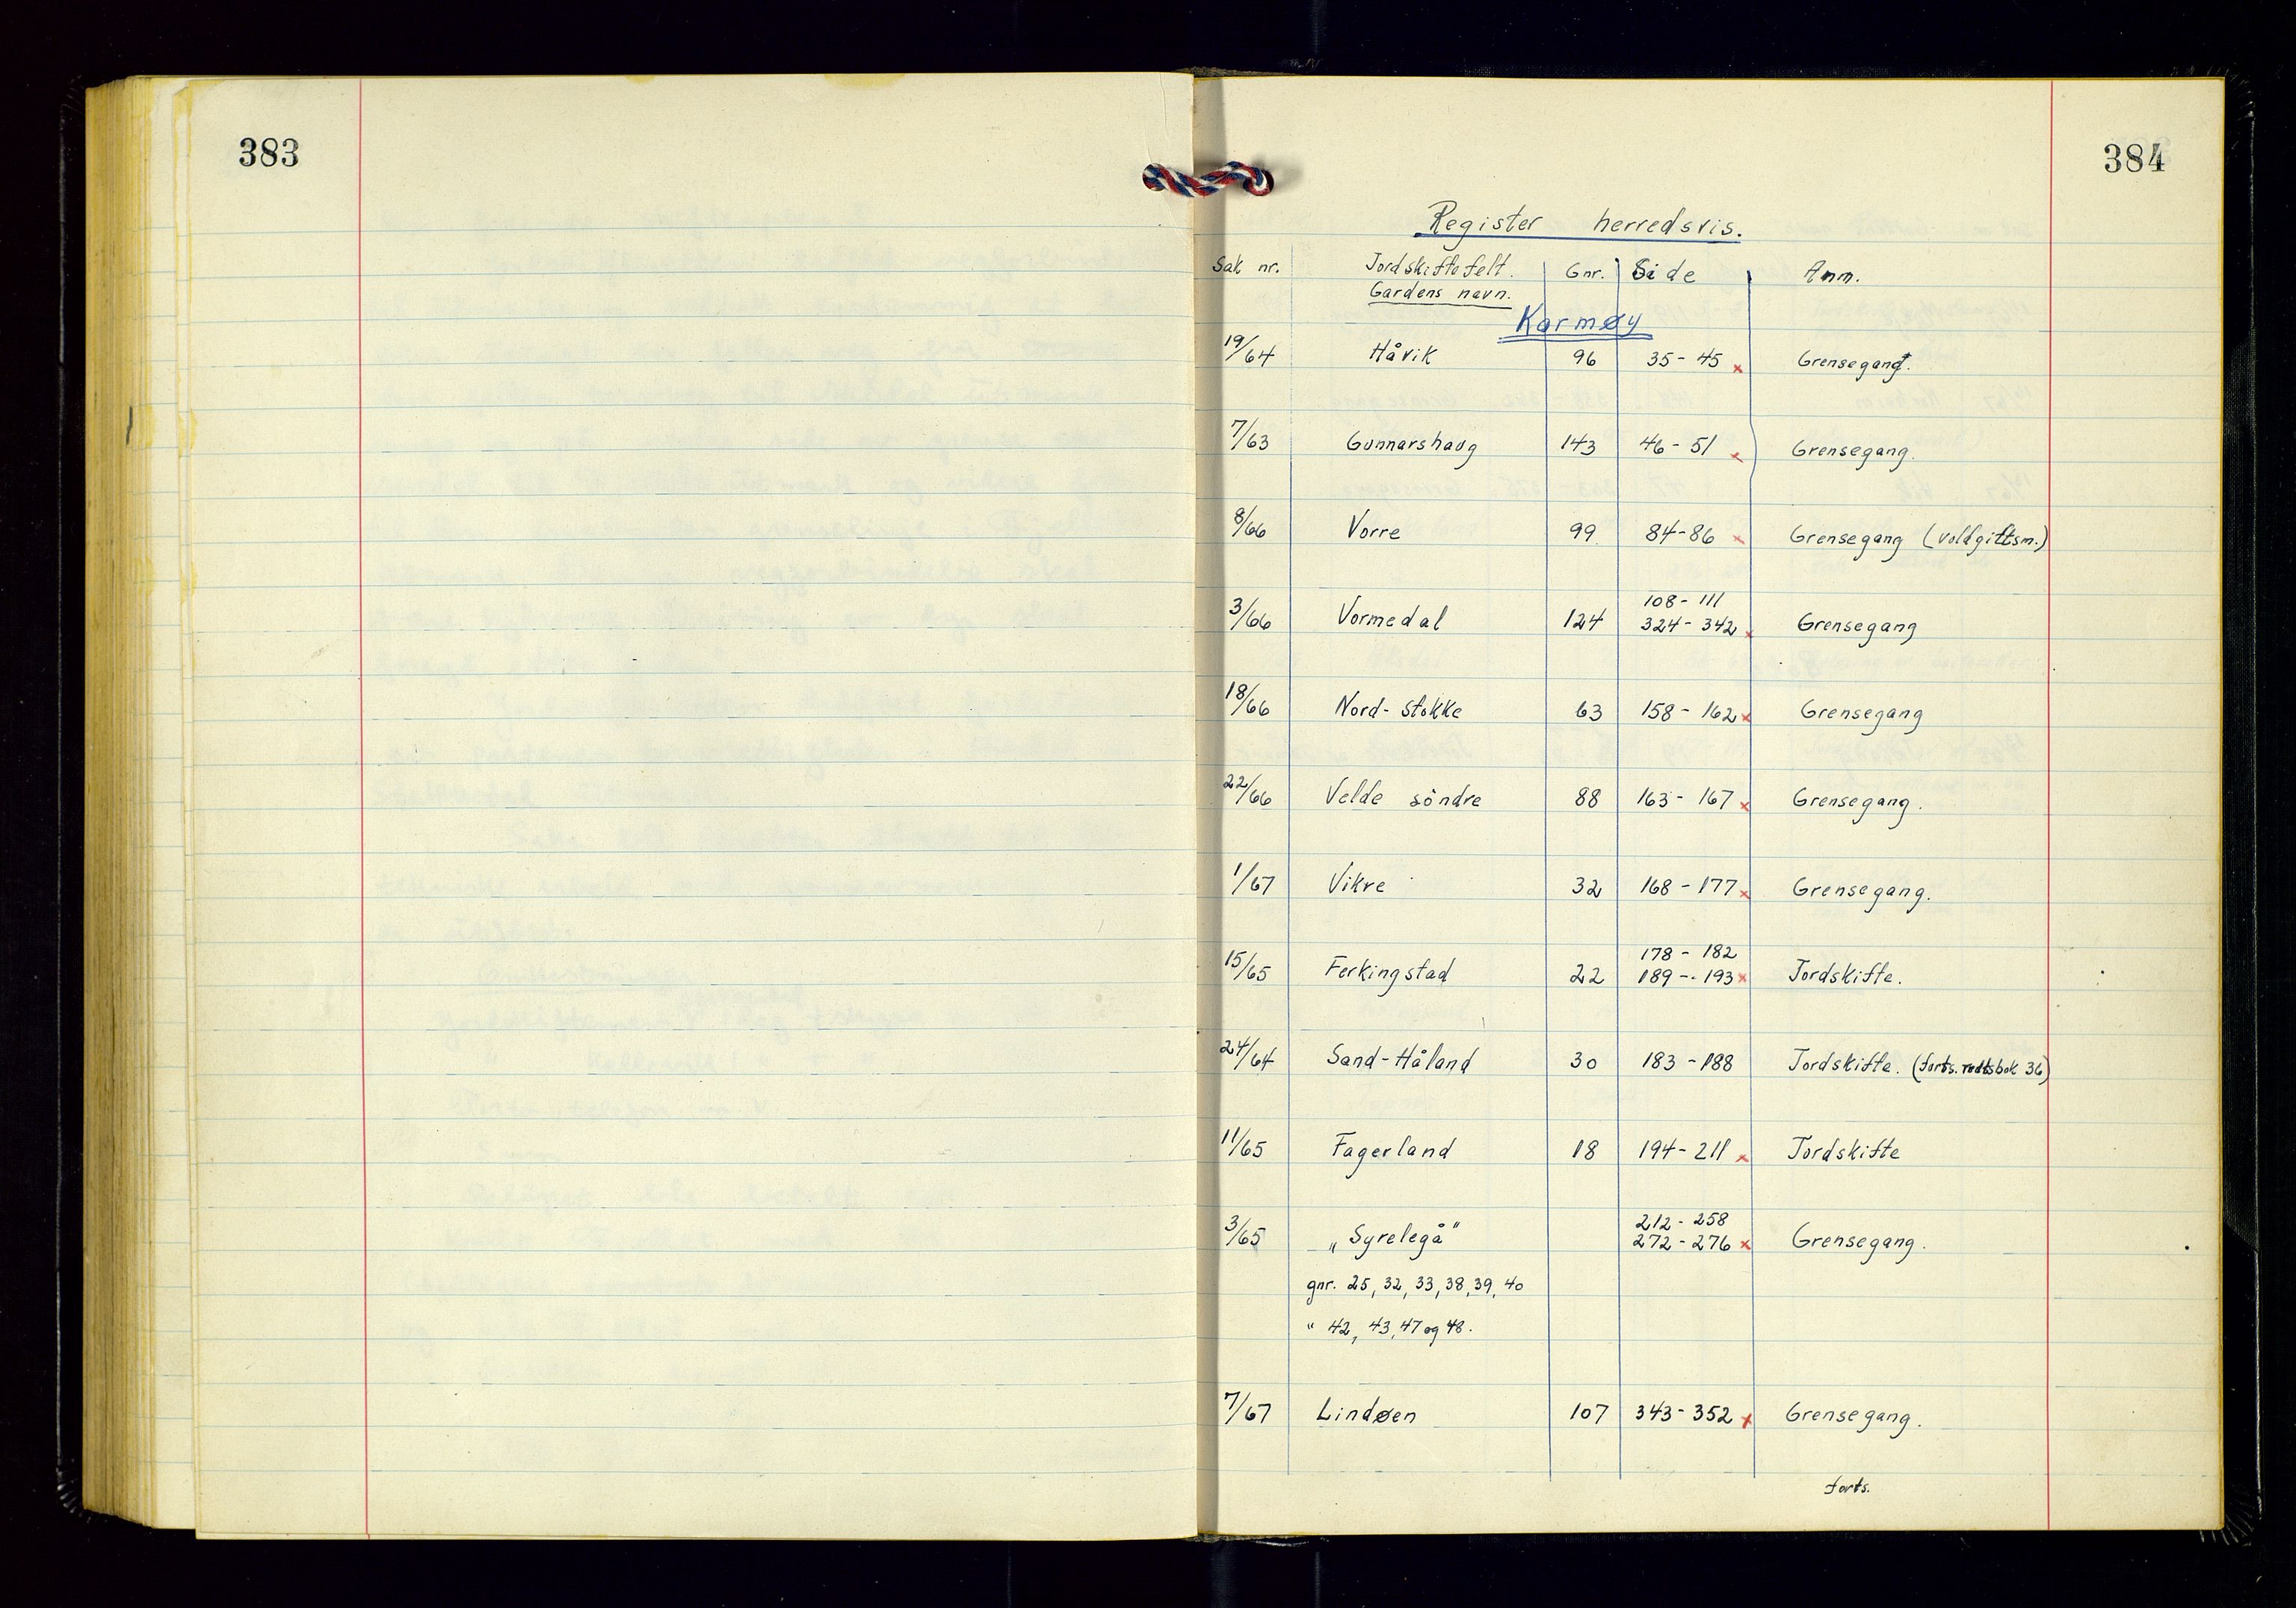 383
384
Register herredsvis.
Sak nr. Jordskiftefelt. Gnr. Side Anm.
Gardens navn.
Karmøy
19/64 Håvik 96 35-45 x Grensegang.
7/63 Gunnarshaug 143 46-51 x Grensegang.
8/66 Vorre 99 84-86 x Grensegang (voldgiftsm.)
108-111
3/66 Vormedal 124 324-342 x Grensegang
18/66 Nord-Stokke 63 158-162 x Grensegang
22/66 Velde söndre 88 163-167 x Grensegang.
1/67 Vikre 32 168-177 x Grensegang.
178-182
15/65 Ferkingstad 22 189--193 x Jordskifte.
24/64 Sand-Håland 30 183-188 Jordskifte. (forts. rettsbok 36)
11/65 Fagerland 18 194-211 x Jordskifte
212-258
3/65 „Syrelegå" 272-276 x Grensegang.
gnr. 25, 32, 33, 38, 39, 40
" 42, 43, 47 og 48.
7/67 Lindøen 107 343-352 x Grensegang.
forts.